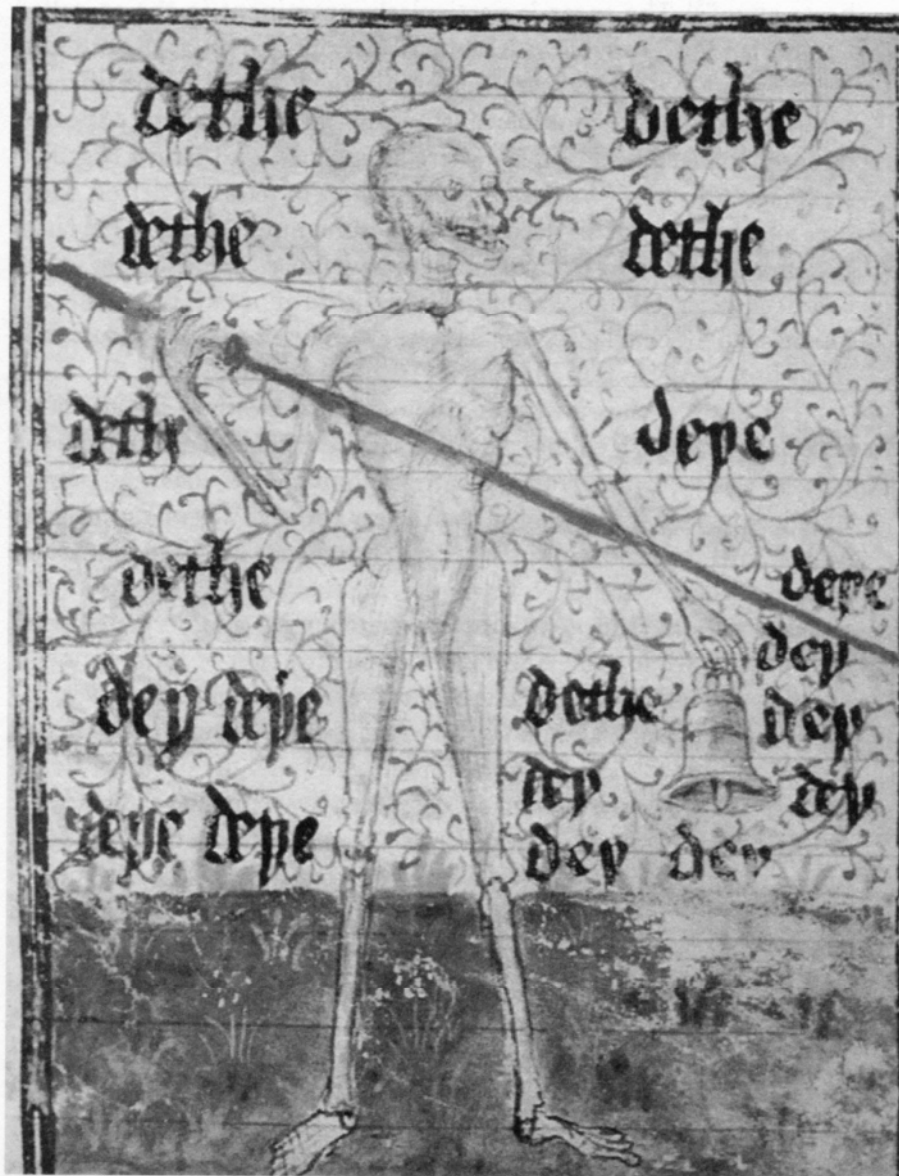 dethe dethe
dethe dethe
deth depe
dethe depe
dey
dey depe dethe dey
dey dey
depe depe dey dey